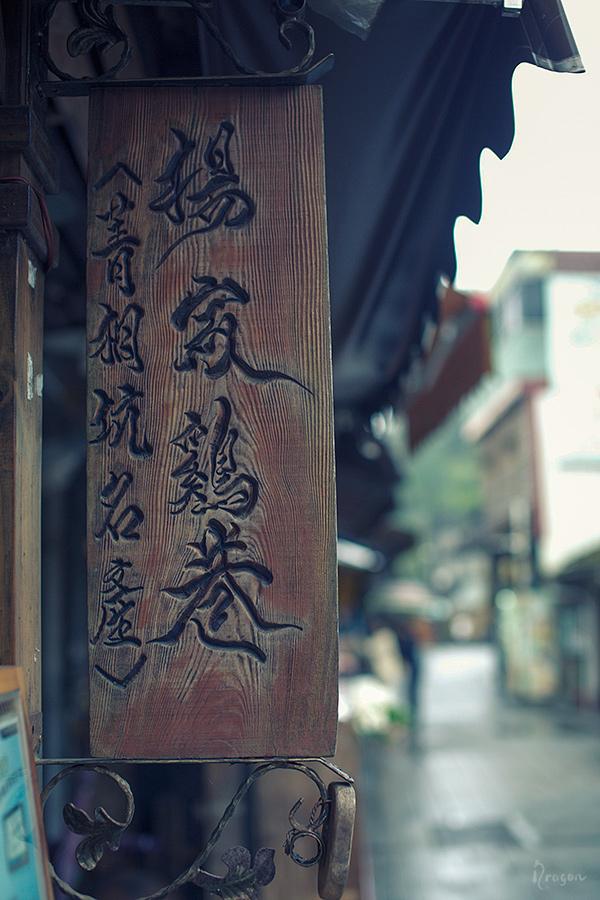 楊家雞卷
〈菁桐坑名產〉